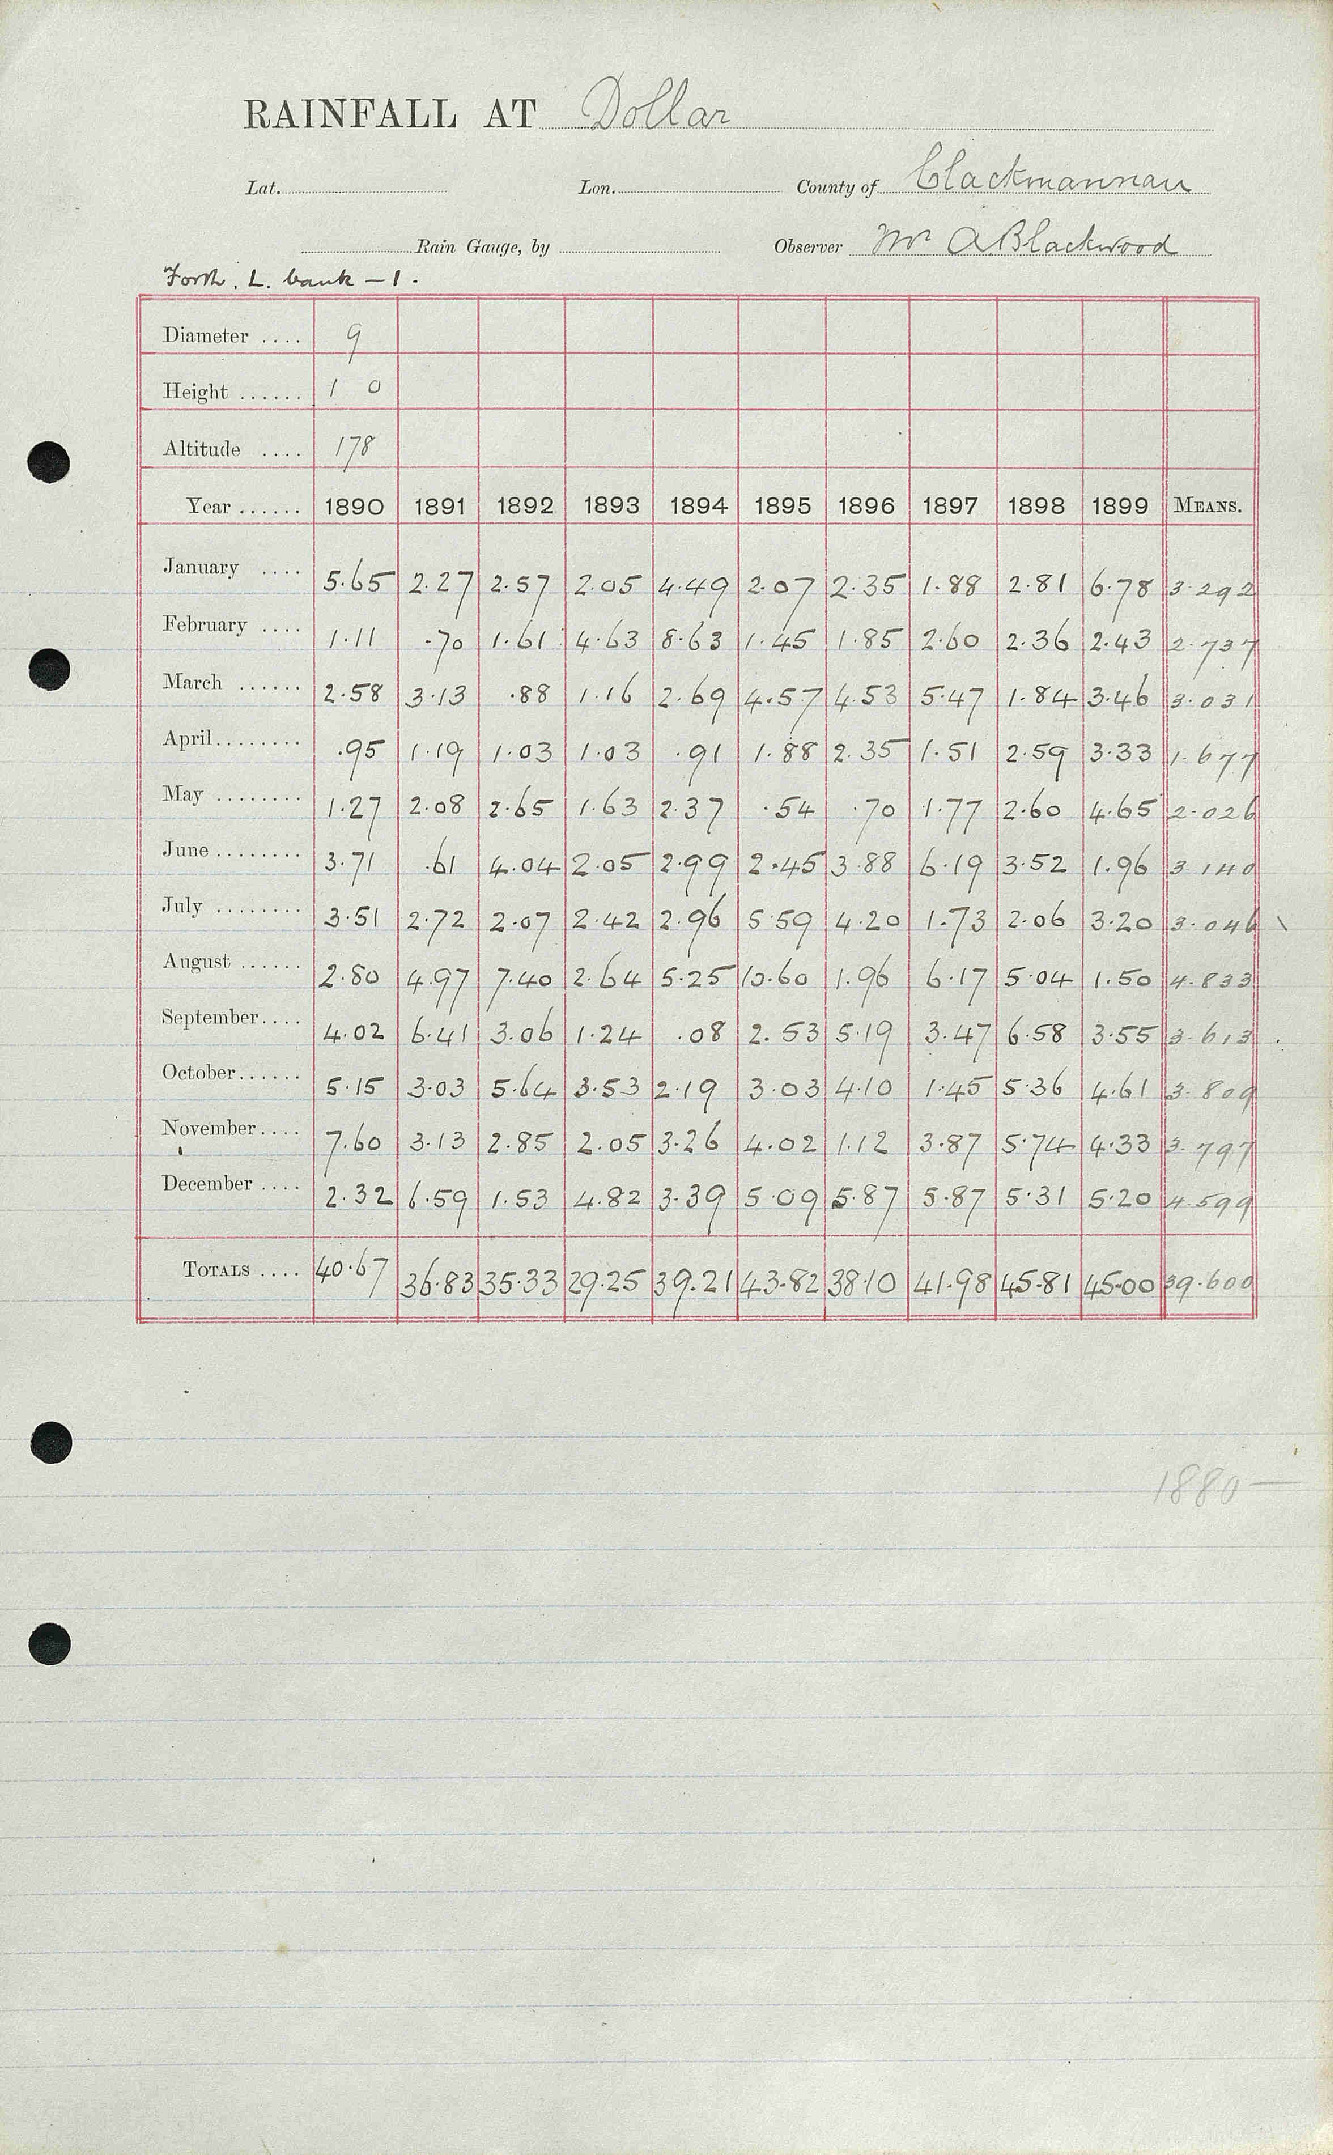 RAINFALL AT Dollar
Lat. Lon. County of Clackmannan
Rain Gauge, by Observer Mr A Blackwood
Forth. L. bank – 1.
Diameter .... 9
Height ...... 1 0
Altitude .... 178
Year ...... 1890 1891 1892 1893 1894 1895 1896 1897 1898 1899 MEANS.
January .... 5.65 2.27 2.57 2.05 4.49 2.07 2.35 1.88 2.81 6.78 3.292
February .... 1.11 .70 1.61 4.63 8.63 1.45 1.85 2.60 2.36 2.43 2.737
March ...... 2.58 3.13 .88 1.16 2.69 4.57 4.53 5.47 1.84 3.46 3.031
April........ .95 1.19 1.03 1.03 .91 1.88 2.35 1.51 2.59 3.33 1.677
May ........ 1.27 2.08 2.65 1.63 2.37 .54 .70 1.77 2.60 4.65 2.026
June ........ 3.71 .61 4.04 2.05 2.99 2.45 3.88 6.19 3.52 1.96 3.140
July ........ 3.51 2.72 2.07 2.42 2.96 5.59 4.20 1.73 2.06 3.20 3.046
August ...... 2.80 4.97 7.40 2.64 5.25 10.60 1.96 6.17 5.04 1.50 4.833
September.... 4.02 6.41 3.06 1.24 .08 2.53 5.19 3.47 6.58 3.55 3.613
October...... 5.15 3.03 5.64 3.53 2.19 3.03 4.10 1.45 5.36 4.61 3.809
November.... 7.60 3.13 2.85 2.05 3.26 4.02 1.12 3.87 5.74 4.33 3.797
December .... 2.32 6.59 1.53 4.82 3.39 5.09 5.87 5.87 5.31 5.20 4.599
TOTALS .... 40.67 36.83 35.33 29.25 39.21 43.82 38.10 41.98 45.81 45.00 39.600
1880 —